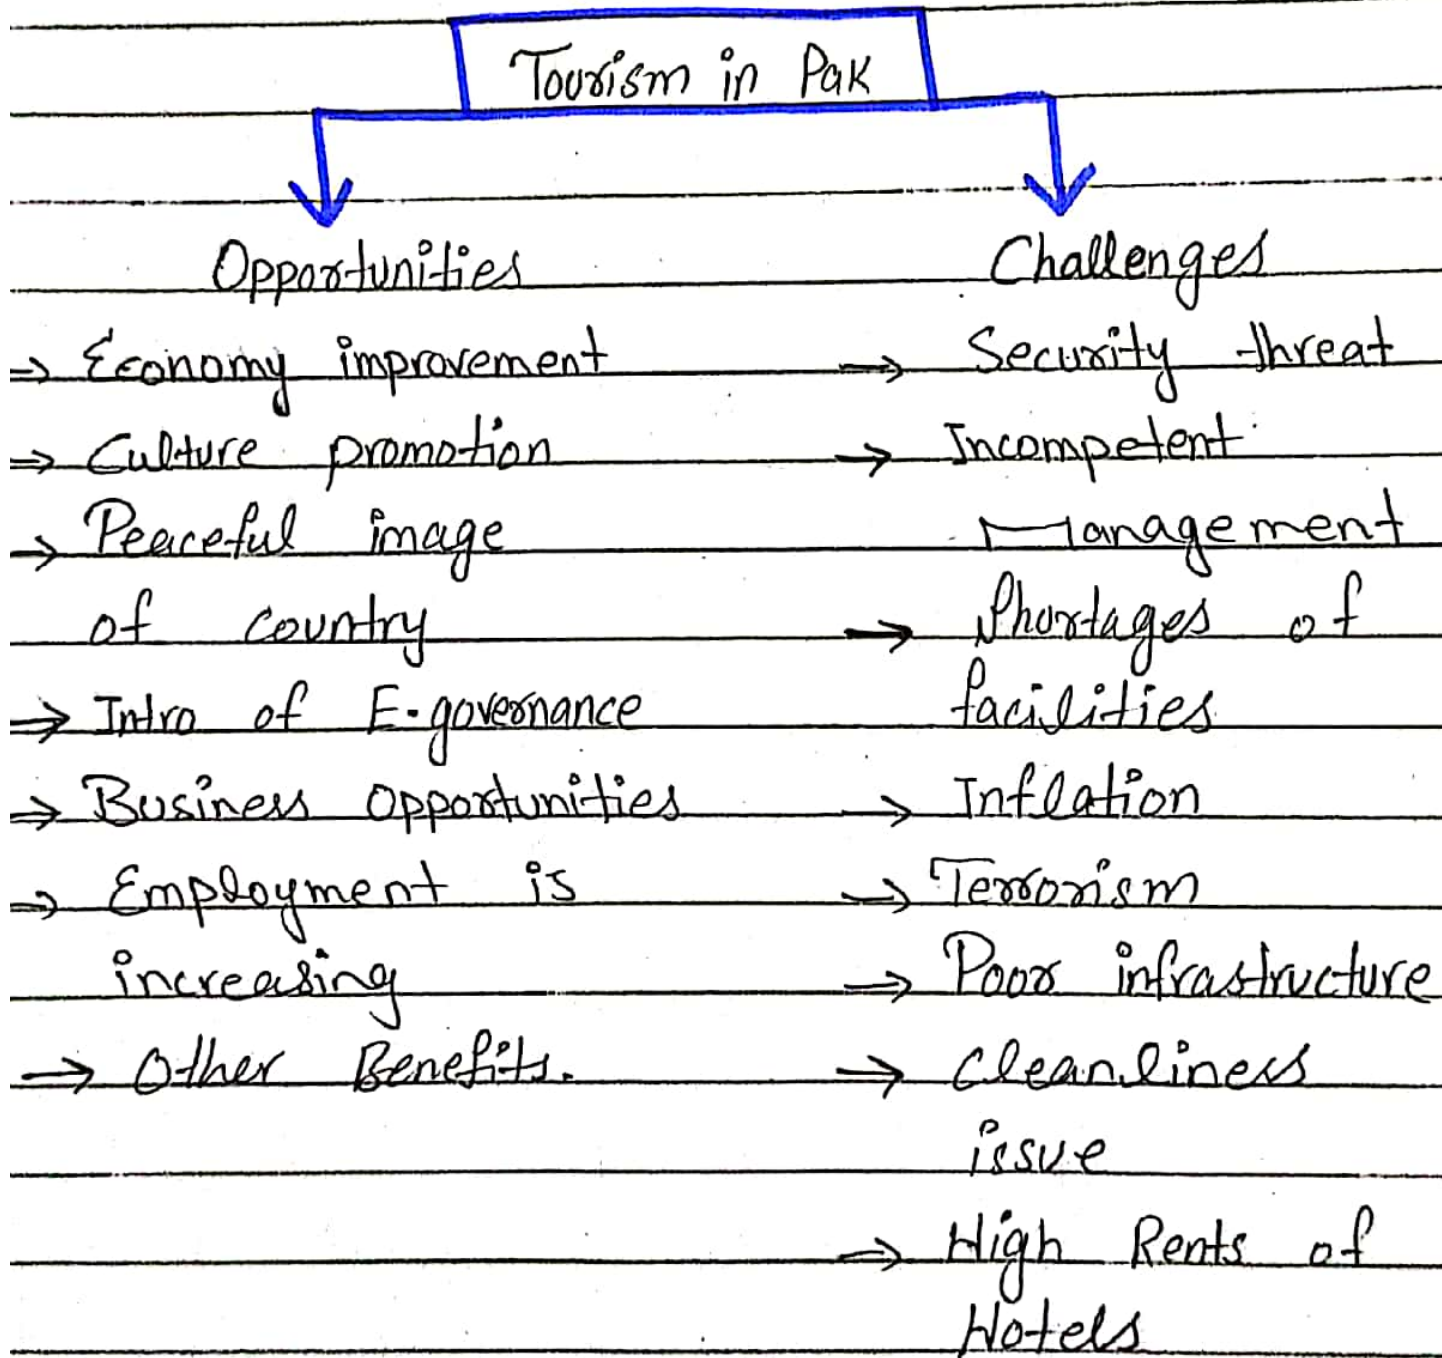 Tourism in Pak
Opportunities
⇒ Economy improvement
⇒ Culture promotion
⇒ Peaceful image
of country
⇒ Intro of E-governance
⇒ Business opportunities
⇒ Employment is
increasing
⇒ Other Benefits.
Challenges
⇒ Security threat
→ Incompetent
Management
⇒ Shortages of
facilities
⇒ Inflation
⇒ Terrorism
⇒ Poor infrastructure
⇒ Cleanliness
issue
⇒ High Rents of
Hotels